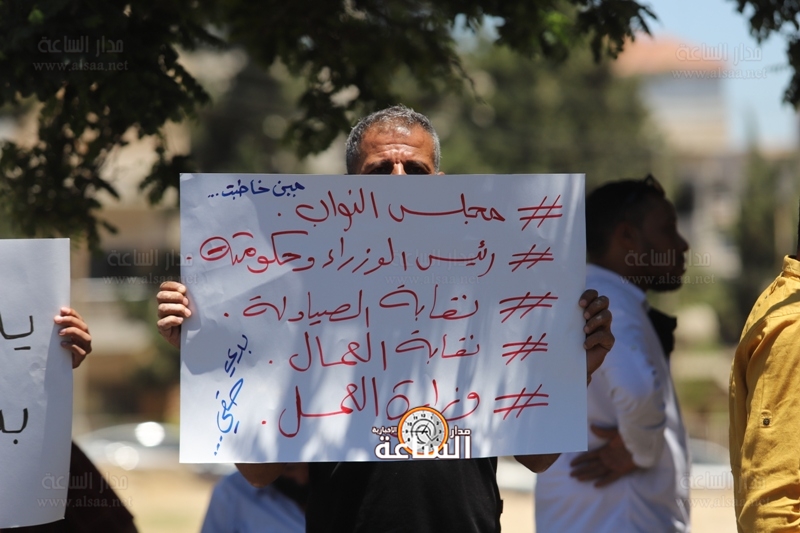 مين خاطبت...
# مجلس النواب.
# رئيس الوزراء وحكومته.
# نقابة الصيادلة.
# نقابة العمال.
# وزارة العمل.
بدي حقي...
يا
بد
مدار الساعة
الاخبارية
مدار الساعة
www.alsaa.net